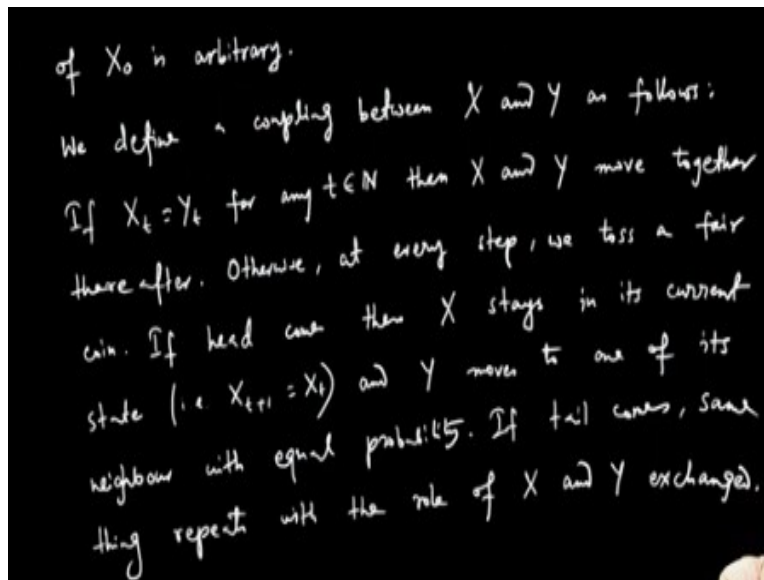 of X₀ is arbitrary.
We define a coupling between X and Y as follows:
If Xₜ = Yₜ for any t ∈ ℕ then X and Y move together
thereafter. Otherwise, at every step, we toss a fair
coin. If head come then X stays in its current
state (i.e. Xₜ₊₁ = Xₜ) and Y moves to one of its
neighbour with equal probability. If tail comes, same
thing repeats with the role of X and Y exchanged.